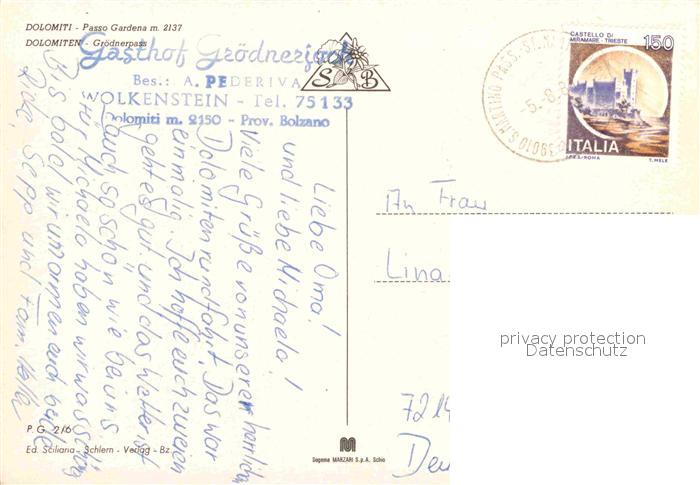 DOLOMITI - Passo Gardena m. 2137
DOLOMITEN - Grödnerpass
Gasthof Grödnerjoch
Bes.: A. PEDERIVA
WOLKENSTEIN - Tel. 75133
Dolomiti m. 2150 - Prov. Bolzano
S B
Liebe Oma!
und liebe Michaela!
Viele Grüße von unserer herrlichen
Dolomitenrundfahrt. Das war
einmalig. Ich hoffe euch zwein
geht es gut und das Wetter ist
auch so schön wie bei uns.
Für Michaela haben wir was schönes
Bis bald wir umarmen euch beide
Sepp und Fam.
P.G. 2/6
Ed. Sciliana - Schlern - Verlag - Bz.
Sagoma MARZARI S.p.A. Schio
CASTELLO DI
MIRAMARE - TRIESTE
150
ITALIA
I.P.Z.S./ROMA
T. MELE
39010 S. MARTINO PASS.
-5.-8.
An Frau
Lina
privacy protection
Datenschutz